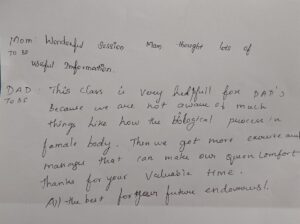 Mom: Wonderful Session Mam thought lots of
TO BE
Useful Information.
DAD: This class is very helpfull for DAD's
TO BE
Because we are not aware of much
things like how the biological process in
female body. Then we get more and
massages that can make our queen comfort
Thanks for your valuable time.
All the best for your future endavours!.